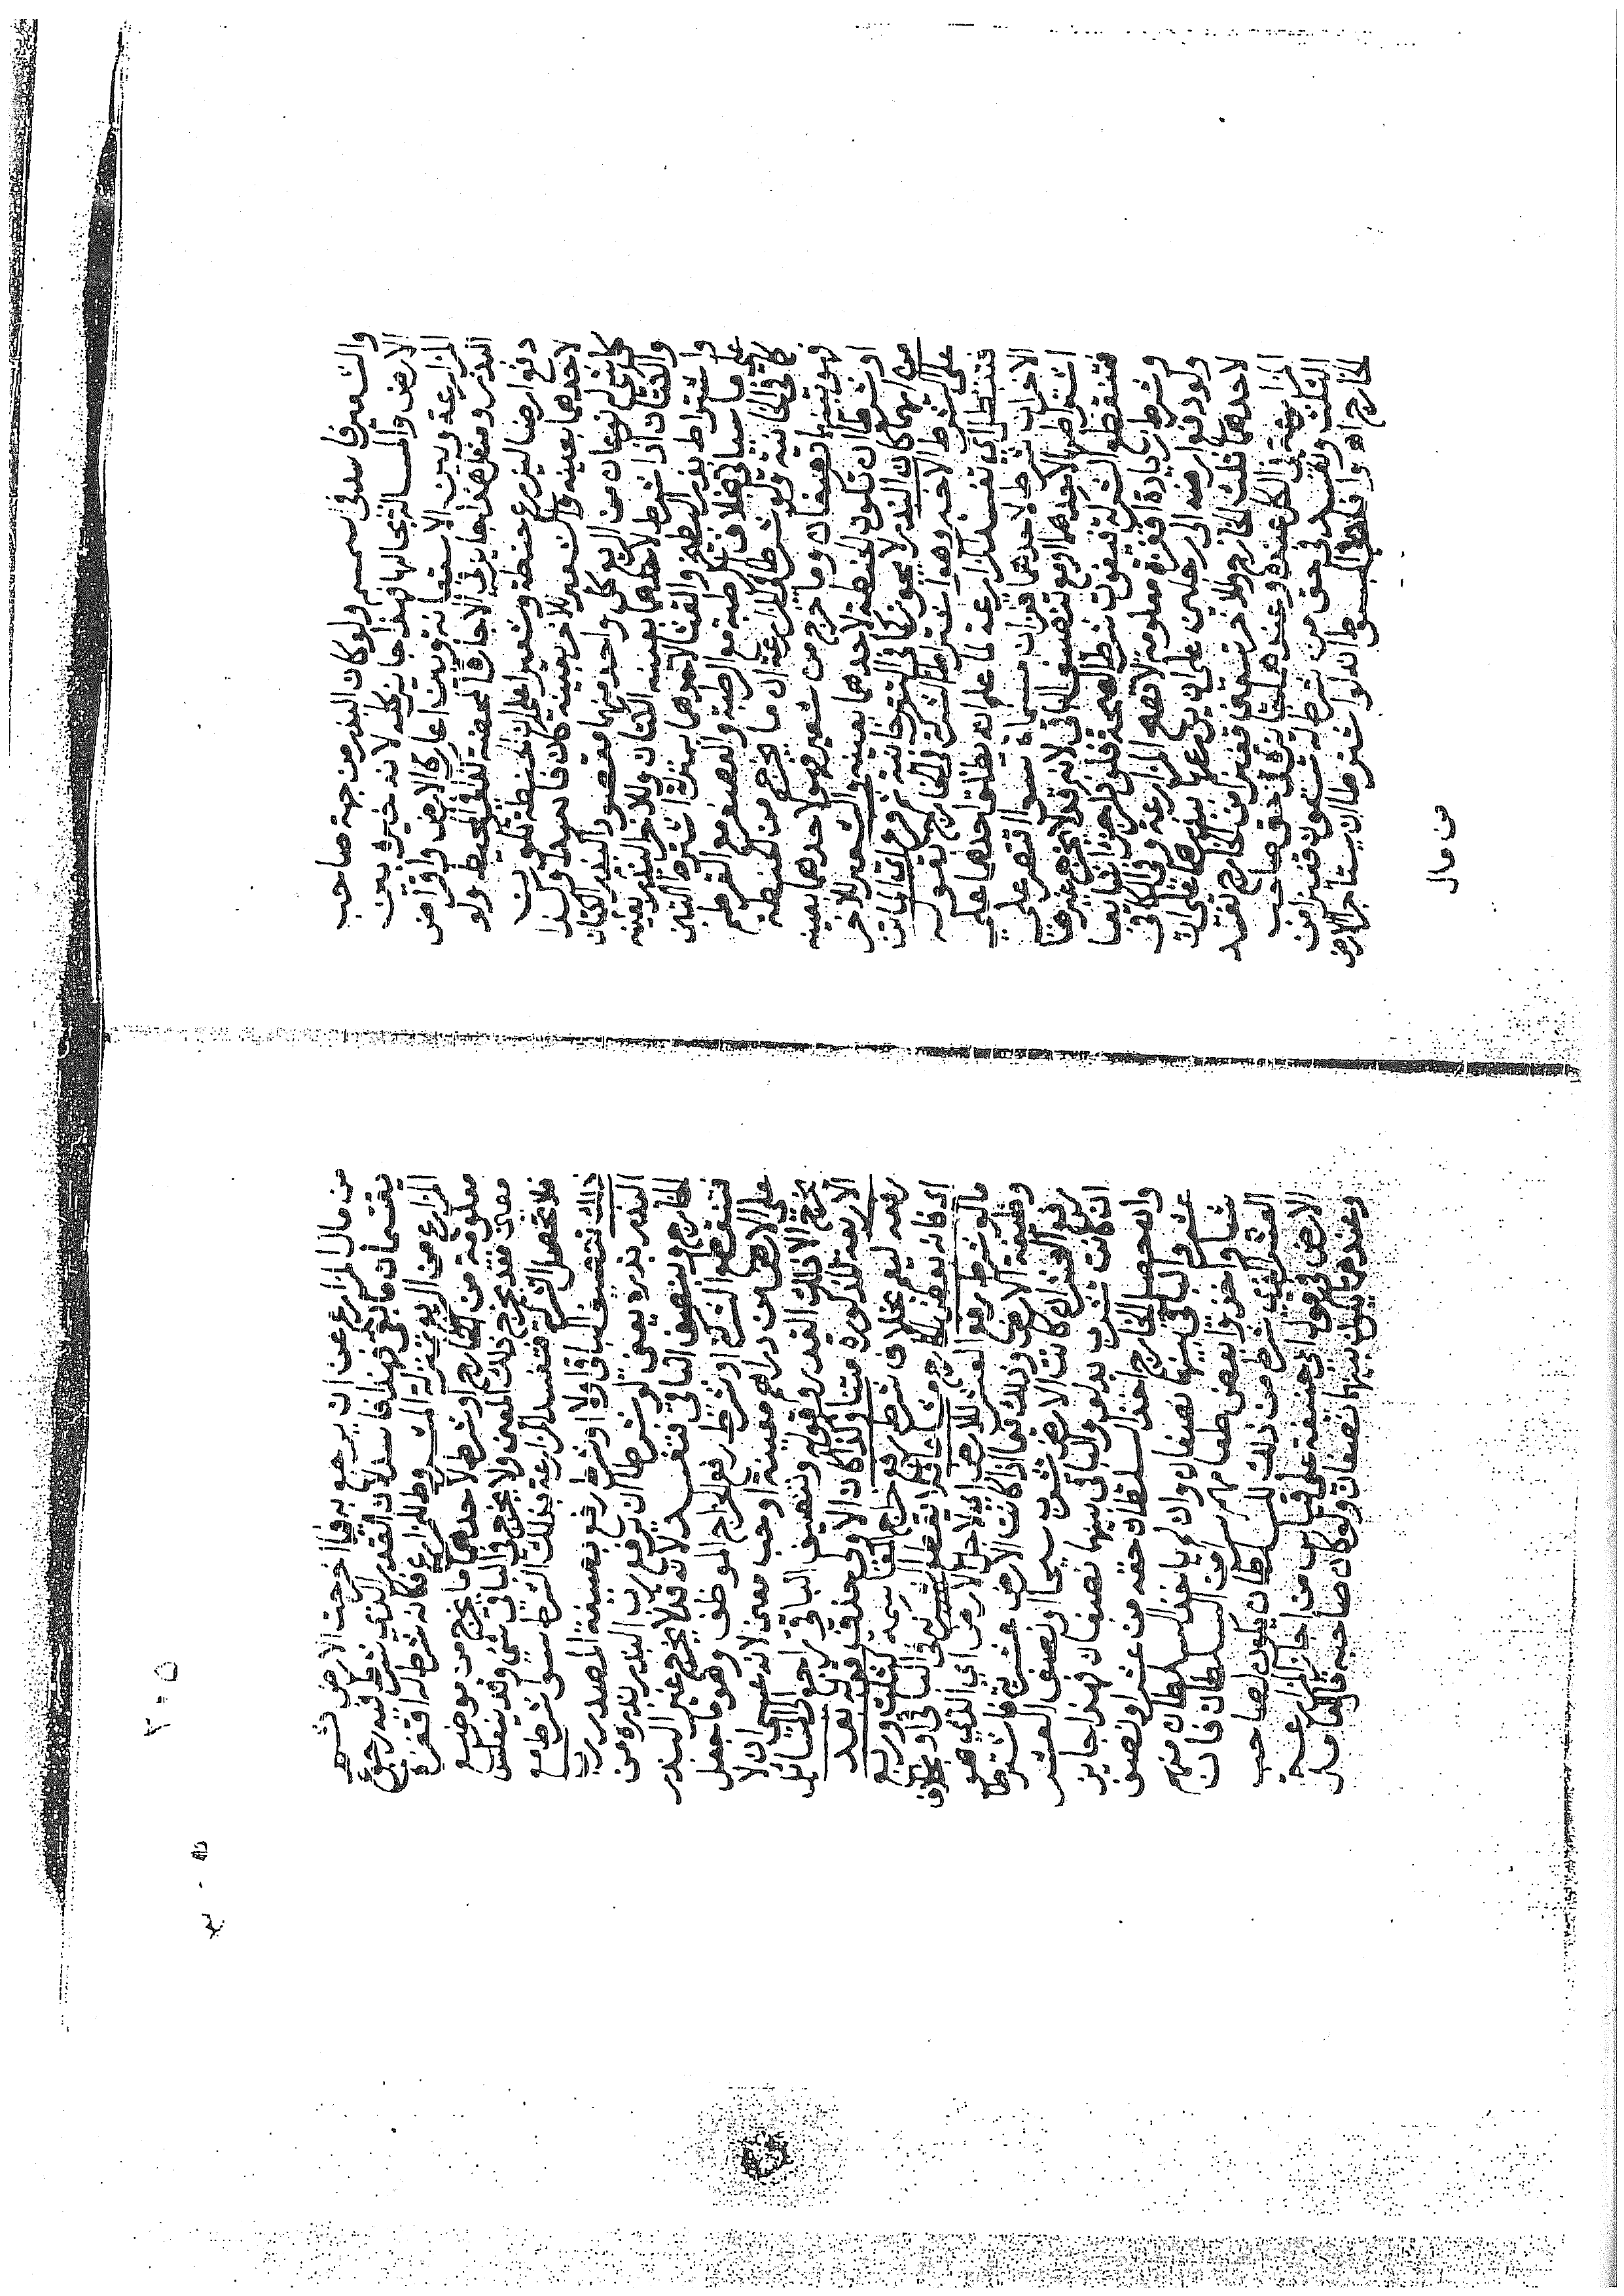 والشعير فاسد في سمسم ولو كان البذر من جهة صاحب
الارض والمسالة بحالها فهذا جايز كله لانه خيره بين
المزارعة وبين الاستعانة وبين اعارة الارض واقراض
البذر ومثل هذا جايز في الاجارة المحضة كذا في المحيط ولو
دفع ارضا ليزرع حنطة وشعيرا على ان الحنطة تكون
لاحدهما بعينه والشعير للاخر بعينه كان فاسدا وكذا
كل شي له نوعان من الريع كل واحد منهما مقصود كبذر الكتان
والكتان اذا شرط لاحدهما بعينه الكتان وللاخر البذر بعينه
واشتراط بذر البطيخ والقثا لاحدهما بمنزلة اشتراط التبن
على ما سياتي بخلاف الرطبة مع الرطبة والعصفر مع القرطم
كما في الخانية ولو شرطا في المزارعة ان ما يخرج من الحنطة
فهو بينهما نصفان وما خرج من شعير فهو لاحدهما بعينه
او شرطا ان تكون الحنطة لاحدهما بعينه والشعير للاخر
من ايهما كان البذر لا يجوز كما في التترخانية ثم فرع المات
على الشرط الاخير وهو اشتراط الشركة في الخارج بقوله
فتبطل اي تفسد المزارعة لما علم انه يطلق احدهما على
الاخر ان شرط لاحدهما قفزان مسماة سوا اقتصر على
اشتراطها لاحدهما او مع تنصيف الباقي لانه قد لا يخرج غيرها
فتنقطع الشركة فيفوت شرط الصحة فلو اخرجت شايعا
وشرط زيادة اقفزة معلومة لا تصح المزارعة وفي الكافي
ولو دفع ارضه الى رجلين على ان يزرعاها ببذرهما على ان
لاحدهما ثلث الخارج وللاخر تسعة قفيزا من الخارج تفسد
المزارعة في الكل عنده وعندهما جايزة في حق صاحب
الثلث وتفسد في حق من شرط له تسعون قفيزا من
الخارج اه وافاد في المبسوط انه لو اشترطا ان يستاجر الارض
من مال
من مال المزارع عن ان يرجع به فيما اخرجت الارض ثم
يقتسمان ما بقي فهذا فاسد لان القدر الذي شرط فيه رجوع
المزارع من الريع بمنزلة المشروط للمزارع فكانه شرط له اقفزة
معلومة من الخارج او شرط لاحدهما ما يخرج من موضع
معين فقد يخرج ذلك المعين ولا يخرج في الباقي شي وقد ينعكس
فلا تحصل الشركة فتفسد المزارعة بذلك الشرط سوا شرط مع
ذلك تنصيف الباقي اولا او شرط رفع بصيغة المصدر رب
البذر بذره يعني لو شرطا ان يرفع رب البذر بذره من
الخارج وينصف الباقي فتفسد لانه قد لا يخرج غير البذر
فتنقطع الشركة او شرط رفع الخراج الموظف وهو ما جعل
على الارض من دراهم معينة او حب معين لانه عسى ان لا
يخرج الا ذلك القدر وقوله وتنصيف الباقي راجع الى المسائل
الاربعة المذكورة متنا ولذا كان الاولى حذف قوله بعد
رفعه ليعم بخلاف شرط رفع خراج المقاسمة كثلث وربع
اي فانه بعض الخارج مشاعا فلا تقطع الشركة في الباقي او بخلاف
ما لو شرط رفع العشر للارض اي لاجل الارض اي الذي هو
وظيفة الارض وذلك فيما اذا كانت الارض عشرية فاشترطا
رفع العشر ان كانت الارض تشرب سيحا او نصف العشر
ان كانت تشرب بدلو والباقي بينهما نصفان فهذا جايز
وان حصل الخارج اخذ السلطان حقه من عشر او نصف
عشر والباقي بينهما نصفان وان لم ياخذ السلطان منهم
شيا واخذوا بعض طعامهم سرا من السلطان فان
العشر الذي شرط من ذلك للسلطان يكون لصاحب
الارض في قول ابي حنيفة على قياس من اجاز المزارعة
وعندهما يكون بينهما نصفان ولو كان صاحبه قال لعامل